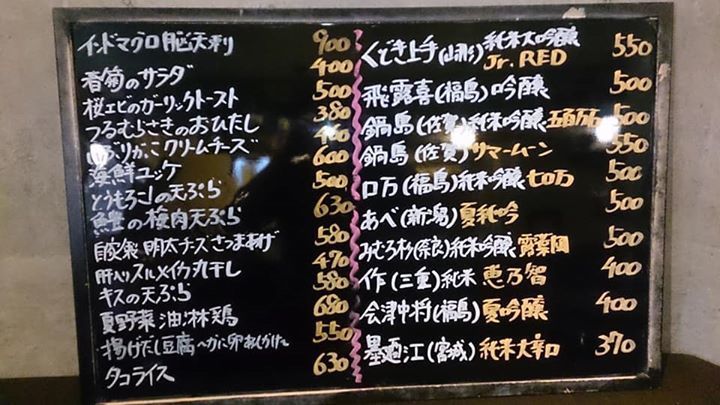 インドマグロ脳天刺 900
春菊のサラダ 400
桜エビのガーリックトースト 500
つるむらさきのおひたし 380
いぶりがっこクリームチーズ
海鮮ユッケ 600
とうもろこしの天ぷら 500
鱧の梅肉天ぷら 630
自家製 明太チーズさつまあげ 580
肝入スルメイカ丸干し 470
キスの天ぷら 580
夏野菜油淋鶏 680
揚げだし豆腐 550
タコライス 630
くどき上手(山形)純米大吟醸 Jr. RED 550
飛露喜(福島)吟醸 500
鍋島(佐賀)純米吟醸 五百万石 500
鍋島(佐賀)サマームーン 550
ロ万(福島)純米吟醸 七ロ万 500
あべ(新潟)夏純吟 500
みむろ杉(奈良)純米吟醸 露葉風 500
作(三重)純米 恵乃智 400
会津中将(福島)夏吟醸 400
墨廼江(宮城)純米大辛口 370